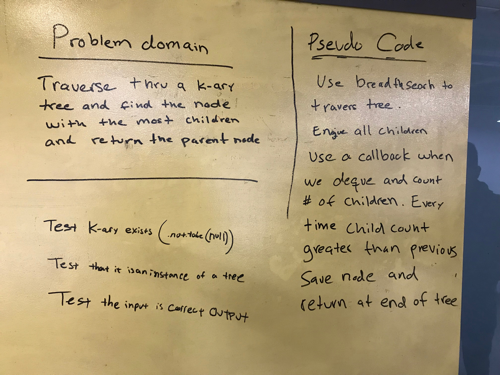 Problem domain
Traverse thru a k-ary
tree and find the node
with the most children
and return the parent node
Test k-ary exists (.not.tobe(null))
Test that it is an instance of a tree
Test the input is correct output
Pseudo Code
Use breadth seach to
travers tree.
Enque all children
Use a callback when
we deque and count
# of children. Every
time child count
greater than previous
Save node and
return at end of tree